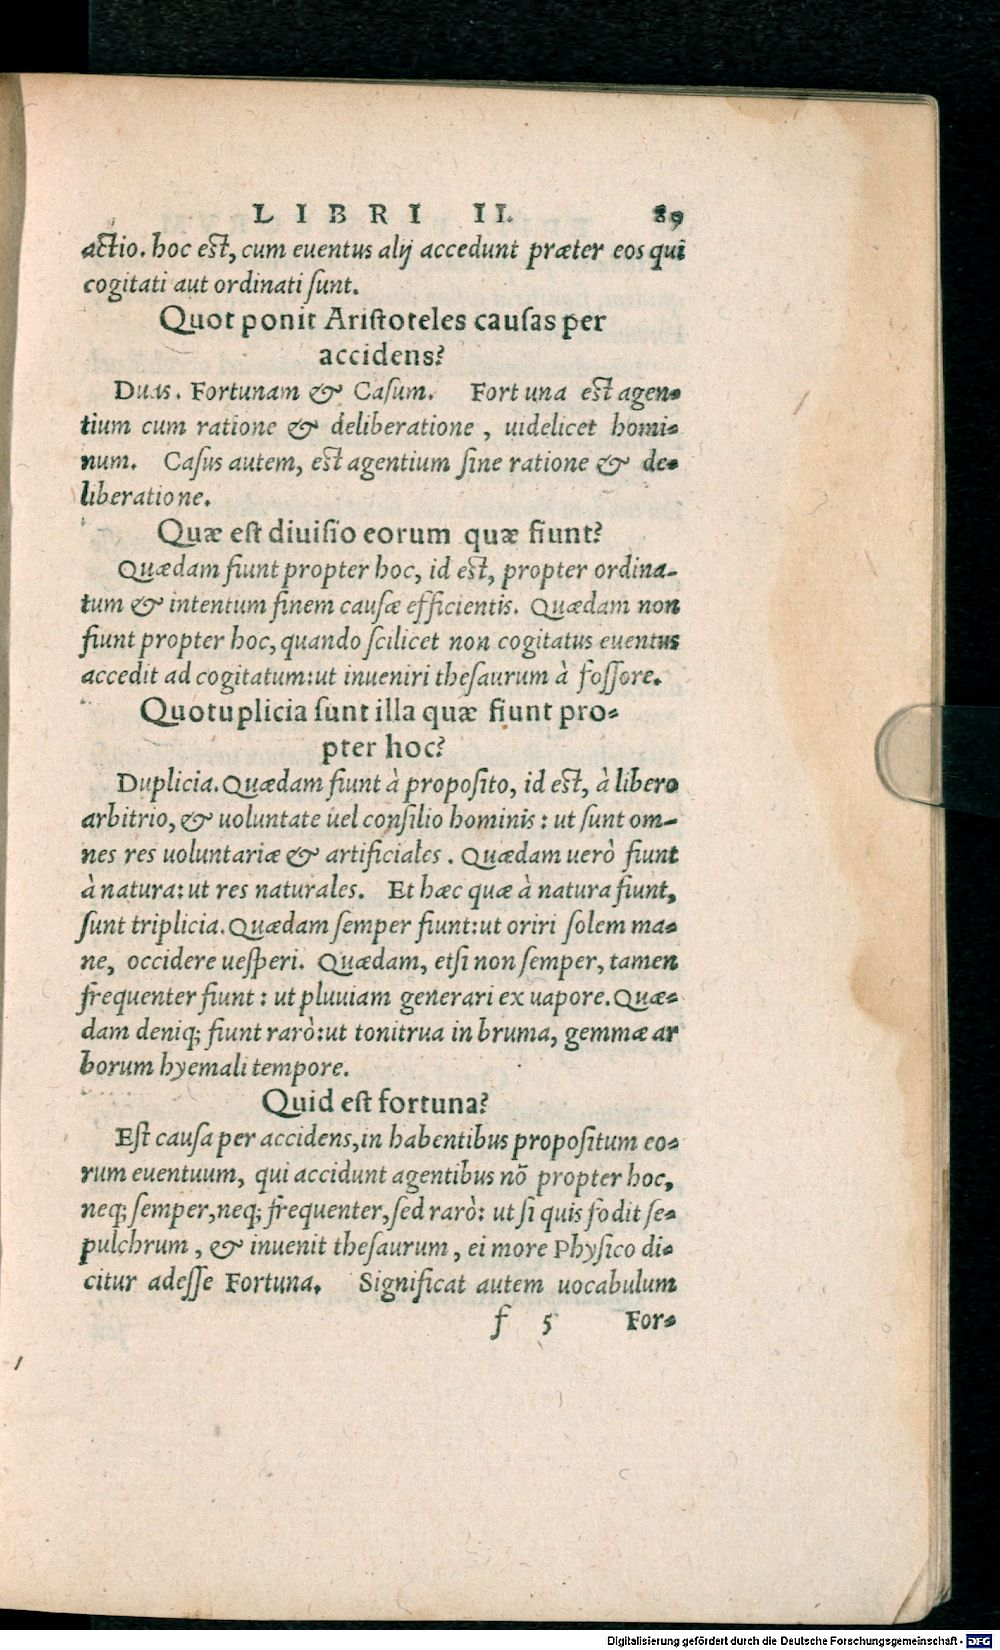 LIBRI II. 89
actio. hoc est, cum euentus alij accedunt præter eos qui
cogitati aut ordinati sunt.
Quot ponit Aristoteles causas per
accidens?
Duas. Fortunam & Casum. Fortuna est agen-
tium cum ratione & deliberatione, uidelicet homi-
num. Casus autem, est agentium sine ratione & de-
liberatione.
Quæ est diuisio eorum quæ fiunt?
Quædam fiunt propter hoc, id est, propter ordina-
tum & intentum finem causæ efficientis. Quædam non
fiunt propter hoc, quando scilicet non cogitatus euentus
accedit ad cogitatum: ut inueniri thesaurum à fossore.
Quotuplicia sunt illa quæ fiunt pro-
pter hoc?
Duplicia. Quædam fiunt à proposito, id est, à libero
arbitrio, & uoluntate uel consilio hominis: ut sunt om-
nes res uoluntariæ & artificiales. Quædam uerò fiunt
à natura: ut res naturales. Et hæc quæ à natura fiunt,
sunt triplicia. Quædam semper fiunt: ut oriri solem ma-
ne, occidere uesperi. Quædam, etsi non semper, tamen
frequenter fiunt: ut pluuiam generari ex uapore. Quæ-
dam deniq; fiunt rarò: ut tonitrua in bruma, gemmæ ar
borum hyemali tempore.
Quid est fortuna?
Est causa per accidens, in habentibus propositum eo-
rum euentuum, qui accidunt agentibus nõ propter hoc,
neq; semper, neq; frequenter, sed rarò: ut si quis fodit se-
pulchrum, & inuenit thesaurum, ei more Physico di-
citur adesse Fortuna. Significat autem uocabulum
f 5 For-
Digitalisierung gefördert durch die Deutsche Forschungsgemeinschaft - DFG